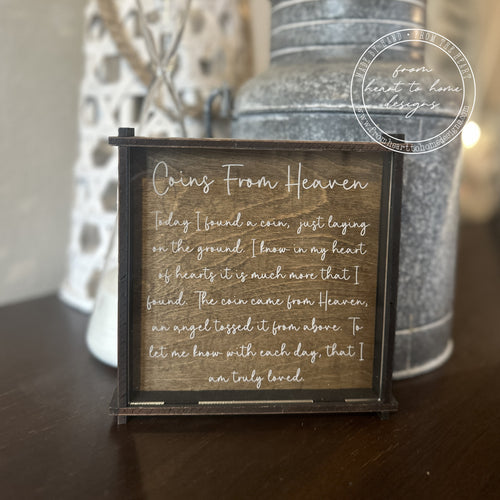 Coins From Heaven
Today I found a coin, just laying
on the ground. I know in my heart
of hearts it is much more that I
found. The coin came from Heaven,
an angel tossed it from above. To
let me know with each day, that I
am truly loved.
MADE BY HAND • FROM THE HEART
from
heart to home
designs
www.fromhearttohomedesigns.com